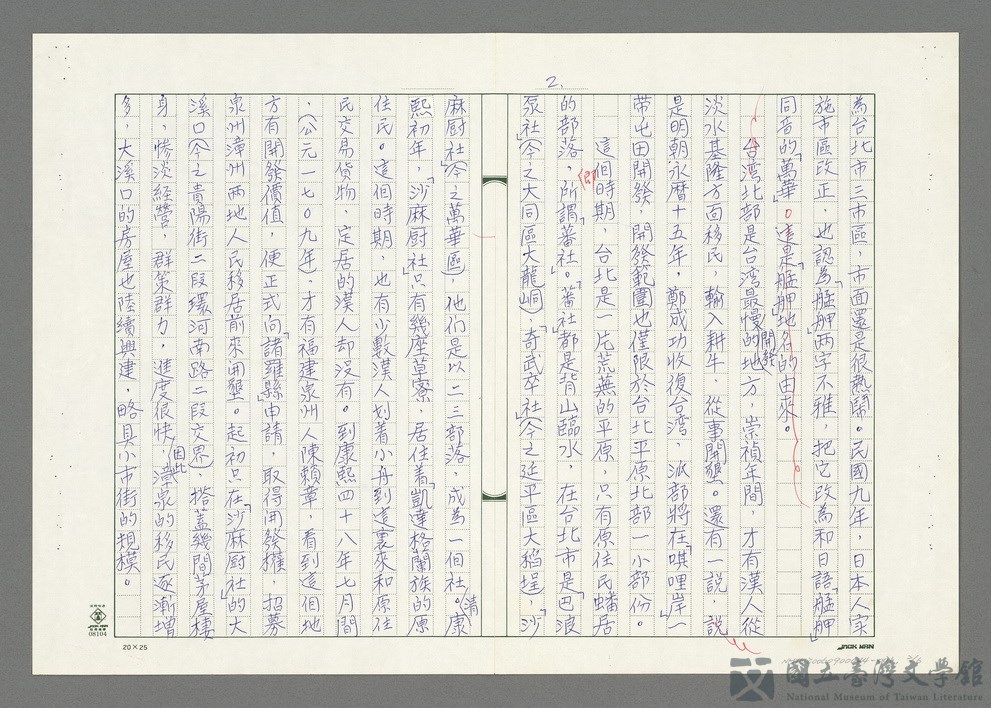 2.
為台北市三市區，市面還是很熱鬧。民國九年，日本人实
施市區改正，也認為「艋舺」两字不雅，把它改為和日語「艋舺」
同音的「萬華」。這是「艋舺」地名的由來。
台湾北部是台湾最慢開發的地方，崇禎年間，才有漢人從
淡水基隆方面移民，輸入耕牛，從事開墾。還有一説，説
是明朝永曆十五年，鄭成功收復台湾，派部將在「唭哩岸」一
帶屯田開發，開發範圍也僅限於台北平原北部一小部份。
這個時期，台北是一片荒蕪的平原，只有原住民蟠居
的部落，即所謂「蕃社」。「蕃社」都是背山臨水，在台北市是「巴浪
泵社」（今之大同區大龍峒），「奇武卒社」（今之延平區大稻埕），「沙
麻廚社」（今之萬華區），他们是以二三部落，成為一個社。清康
熙初年，「沙麻厨社」只有幾座草寮，居住着凱達格蘭族的原
住民。這個時期，也有少數漢人划着小舟到這裏來和原住
民交易貨物，定居的漢人却没有。到康熙四十八年七月間
，（公元一七０九年），才有福建泉州人陳賴章，看到這個地
方有開發價值，便正式向「諸羅縣」申請，取得開發權，招募
泉州漳州两地人民移居前來開墾。起初只在「沙麻厨社」的大
溪口（今之貴陽街二段環河南路二段交界），搭蓋幾間茅屋棲
身，慘淡經營，群策群力，進度很快，因此漳泉的移民逐漸增
多，大溪口的房屋也陸續興建，略具小市街的規模。
08104
20×25
JACK MAN
國立臺灣文學館
National Museum of Taiwan Literature